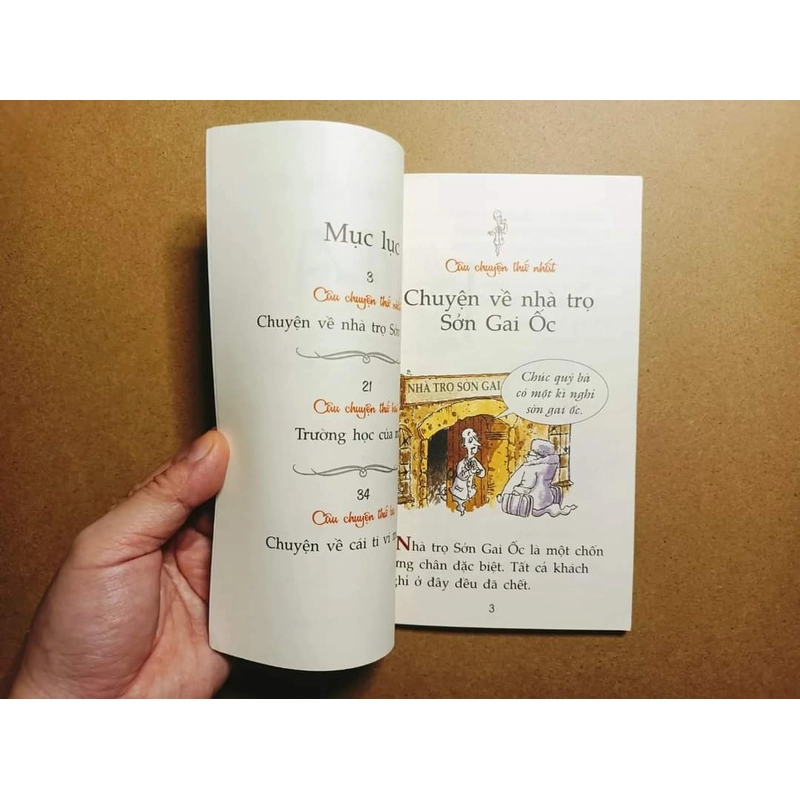 Mục lục
3
Câu chuyện thứ
Chuyện về nhà trọ
21
Câu chuyện thứ
Trường học của
34
Câu chuyện thứ
Chuyện về cái ti vi
Câu chuyện thứ nhất
Chuyện về nhà trọ
Sởn Gai Ốc
NHÀ TRỌ SỞN GAI
Chúc quý bà
có một kì nghỉ
sởn gai ốc.
Nhà trọ Sởn Gai Ốc là một chốn
chân đặc biệt. Tất cả khách
ở đây đều đã chết.
3